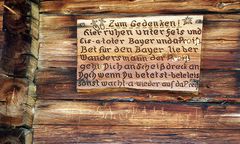 Zum Gedenken!
Hier ruhen unter Fels und
Eis a toter Bayer und a Preiß
Bet für den Bayer lieber
Wandersmann der Preiß
geht Dich an Scheißdreck an
Doch wenn Du betetst bete leis
sonst wacht a wieder auf da Preiß